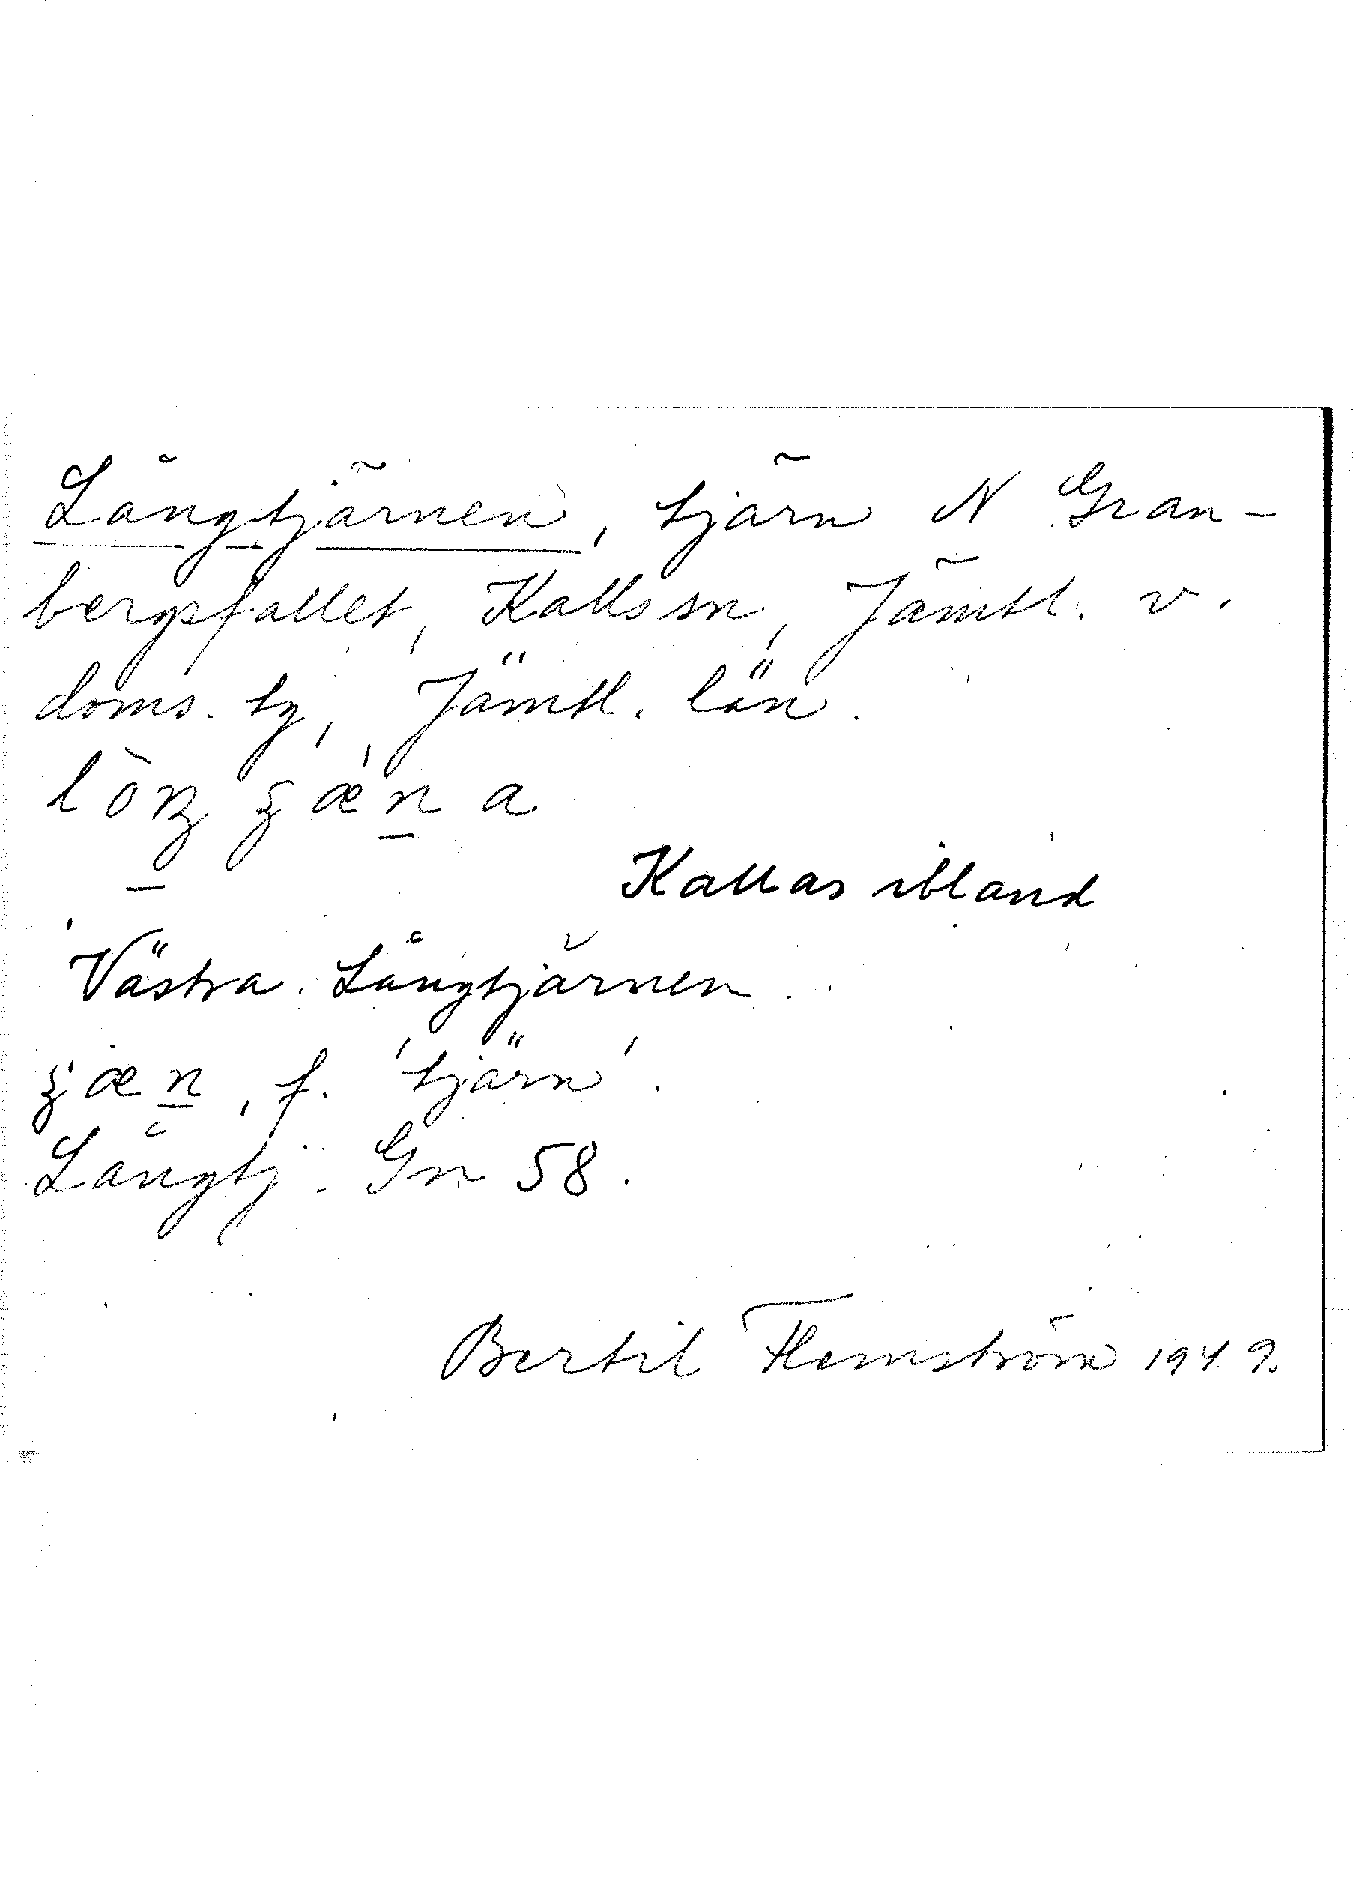 Långtjärnen, tjärn N Gran-
bergsfallet, Kalls sn, Jämtl. v.
doms. tg, Jämtl. län.
Kallas ibland
Västra Långtjärnen.
f. 'tjärn'.
Långtj. Gn 58.
Bertil Flemström 1949.